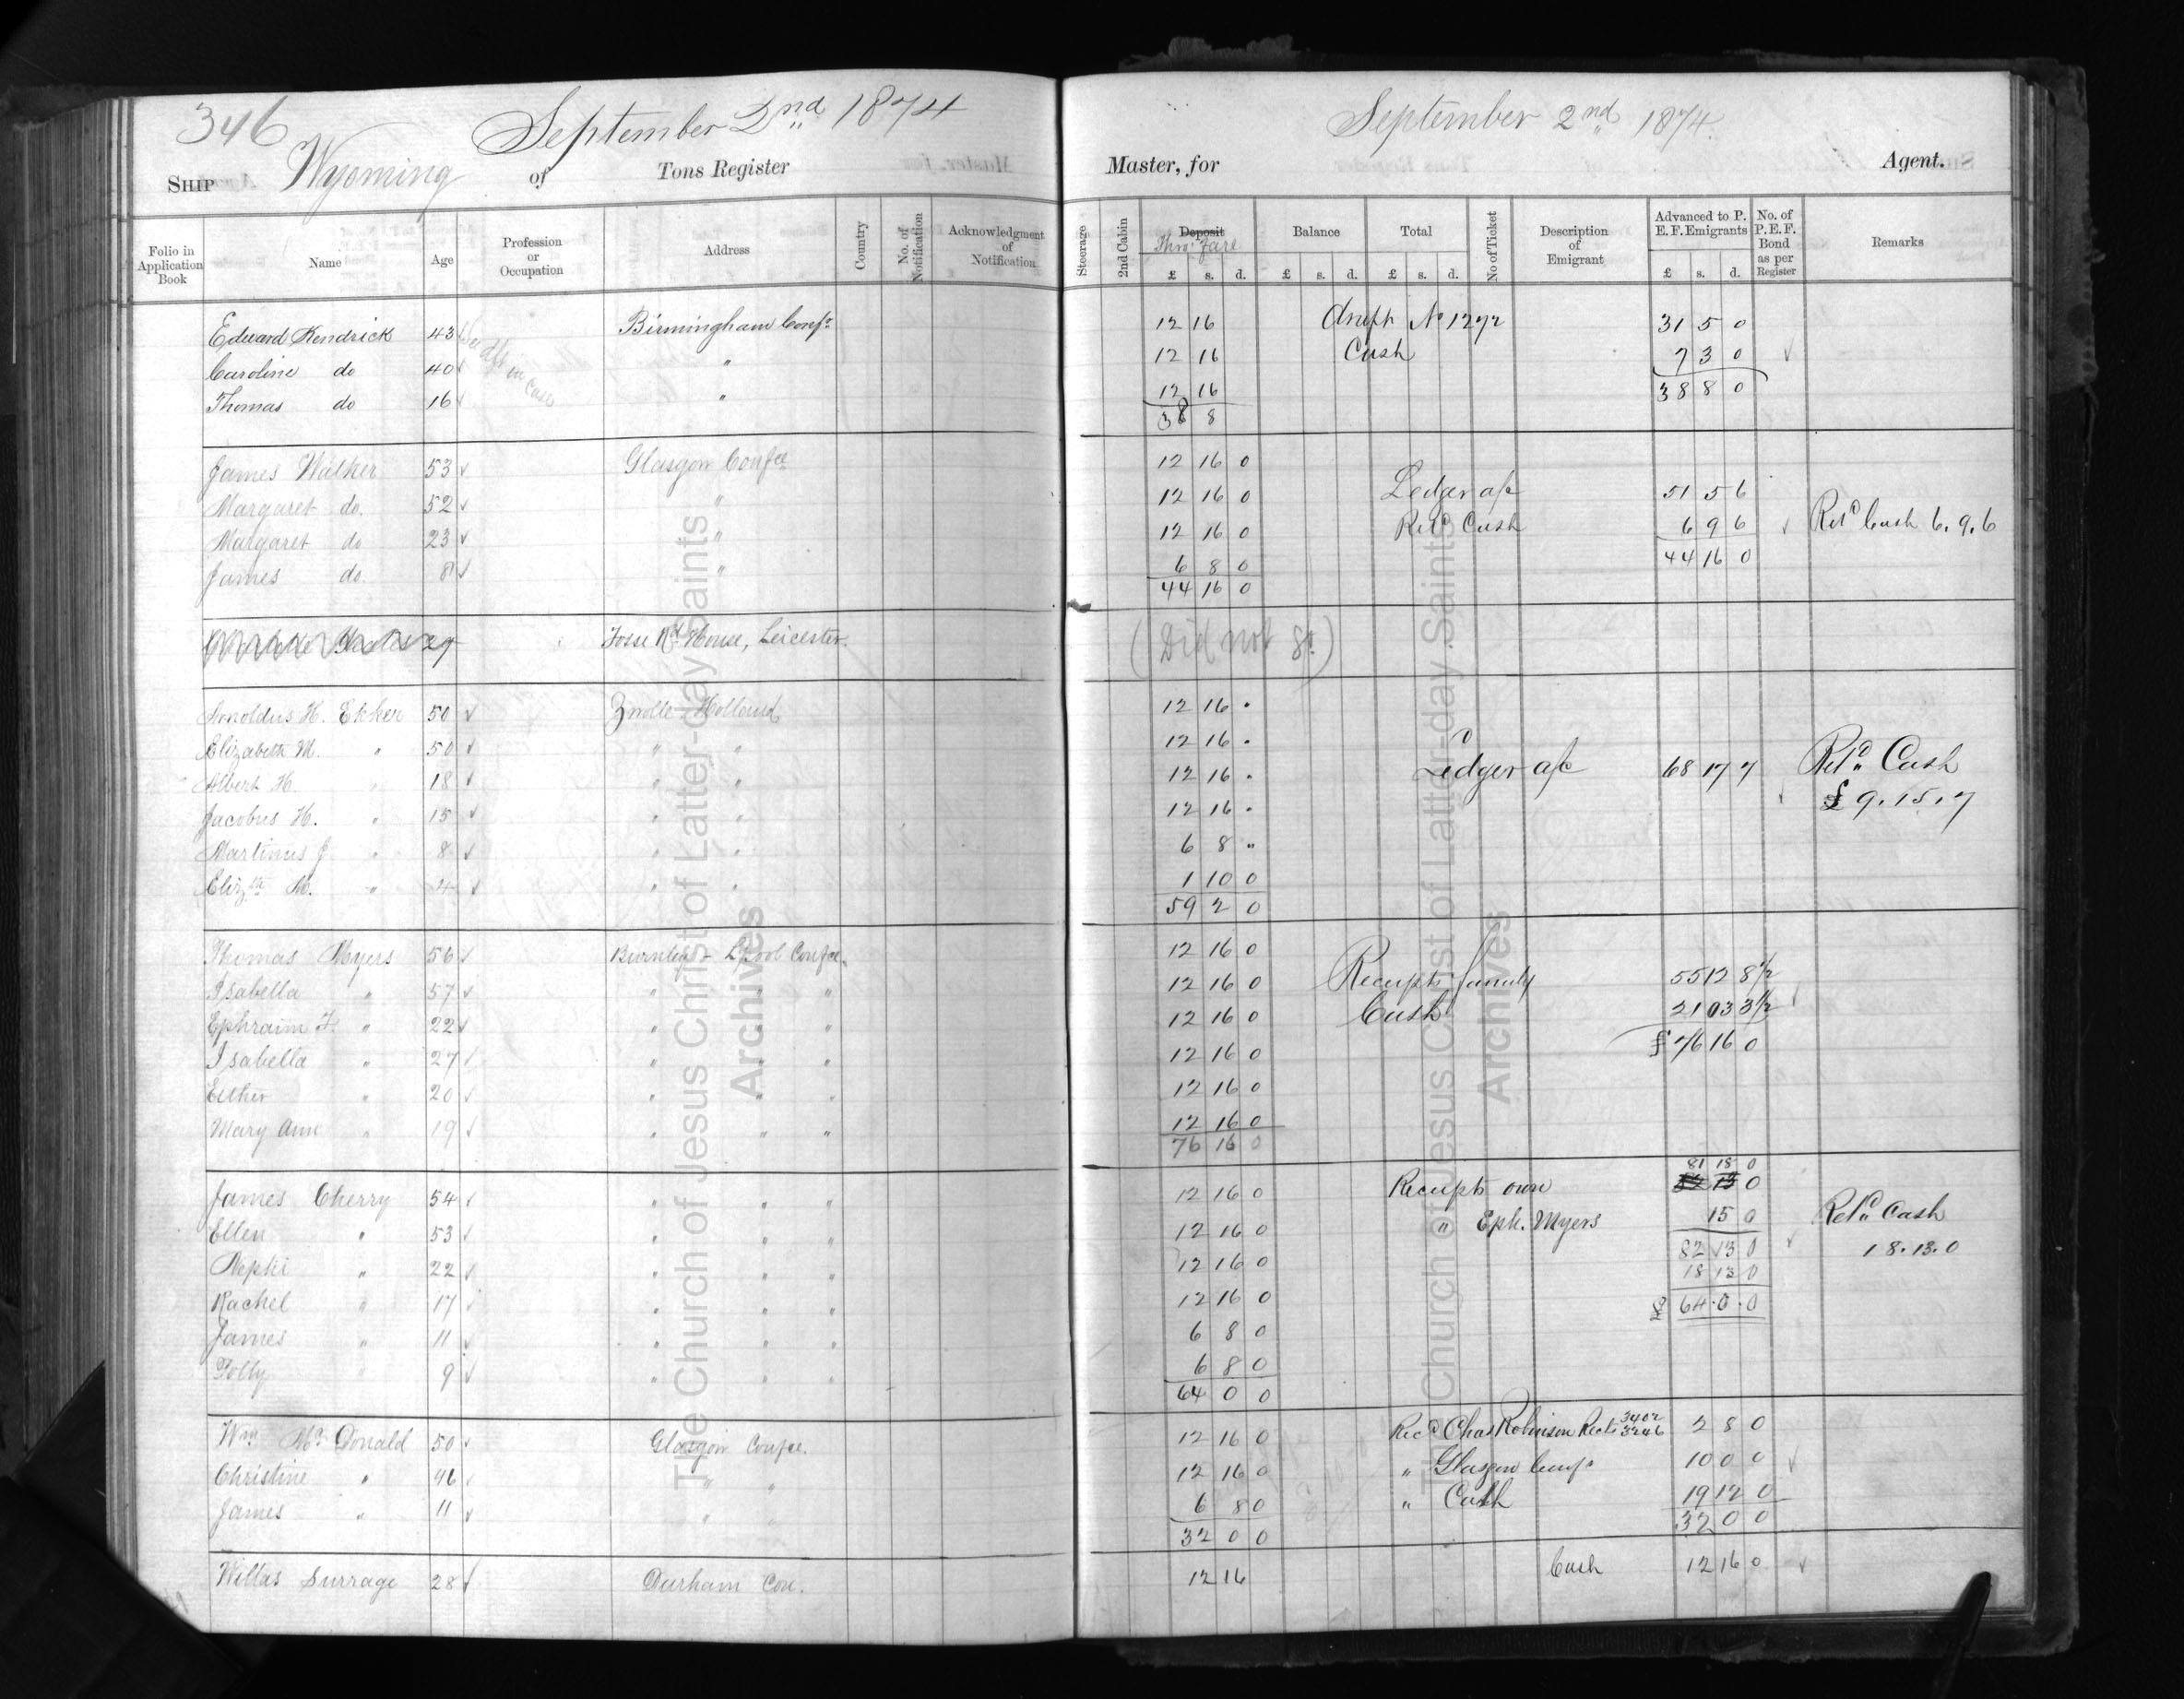 346 September 2nd 1874
SHIP Wyoming of Tons Register
Folio in Application Book Name Age Profession or Occupation Address Country No. of Notification Acknowledgment of Notification
Edward Kendrick 43 Birmingham Confce
Caroline do 40 "
Thomas do 16 "
James Walker 53 Glasgow Confce
Margaret do. 52 "
Margaret do 23 "
James do. 8 "
29 House, Leicester.
Arnoldus H. Ekker 50 Zwolle Holland
Elizabeth M. " 50 " "
Albert H. " 18 " "
Jacobus H. " 15 " "
Martinus J. " 8 " "
Elizth M. " 4 " "
Thomas Myers 56 Burnley - L'pool Confce.
Isabella " 57 " " "
Ephraim F. " 22 " " "
Isabella " 27 " " "
Esther " 20 " " "
Mary Ann " 19 " " "
James Cherry 54 " " "
Ellen " 53 " " "
Nephi " 22 " " "
Rachel " 17 " " "
James " 11 " " "
Polly " 9 " " "
Wm McDonald 50 Glasgow Confce.
Christine " 46 " "
James " 11 " "
Willas Surrage 28 Durham Con.
The Church of Jesus Christ of Latter-day Saints
Archives
September 2nd 1874.
Master, for Agent.
Steerage 2nd Cabin Deposit Thro' Fare £ s. d. Balance £ s. d. Total £ s. d. No of Ticket Description of Emigrant Advanced to P. E. F. Emigrants £ s. d. No. of P.E.F. Bond as per Register Remarks
12 16 Draft No 1272 31 5 0
12 16 Cash 7 3 0
12 16 38 8 0
38 8
12 16 0
12 16 0 Ledger a/c 51 5 6
12 16 0 Retd Cash 6 9 6 Retd Cash 6.9.6
6 8 0 44 16 0
44 16 0
(Did not go)
12 16 .
12 16 .
12 16 . Ledger a/c 68 17 7 Retd Cash
12 16 . £9.15.7
6 8 "
1 10 0
59 2 0
12 16 0
12 16 0 Receipts family 55 12 8 1/2
12 16 0 Cash 21 03 3 1/2
12 16 0 £ 76 16 0
12 16 0
12 16 0
76 16 0
81 18 0
12 16 0 Receipts own 82 13 0
12 16 0 " Eph. Myers 15 0 Retd Cash
12 16 0 82 13 0 18.13.0
12 16 0 18 13 0
6 8 0 £ 64.0.0
6 8 0
64 0 0
12 16 0 Recd Chas Robinson Rects 3402 3246 2 8 0
12 16 0 " Glasgow Confce 10 0 0
6 8 0 " Cash 19 12 0
32 0 0 32 0 0
12 16 Cash 12 16 0
The Church of Jesus Christ of Latter-day Saints
Archives